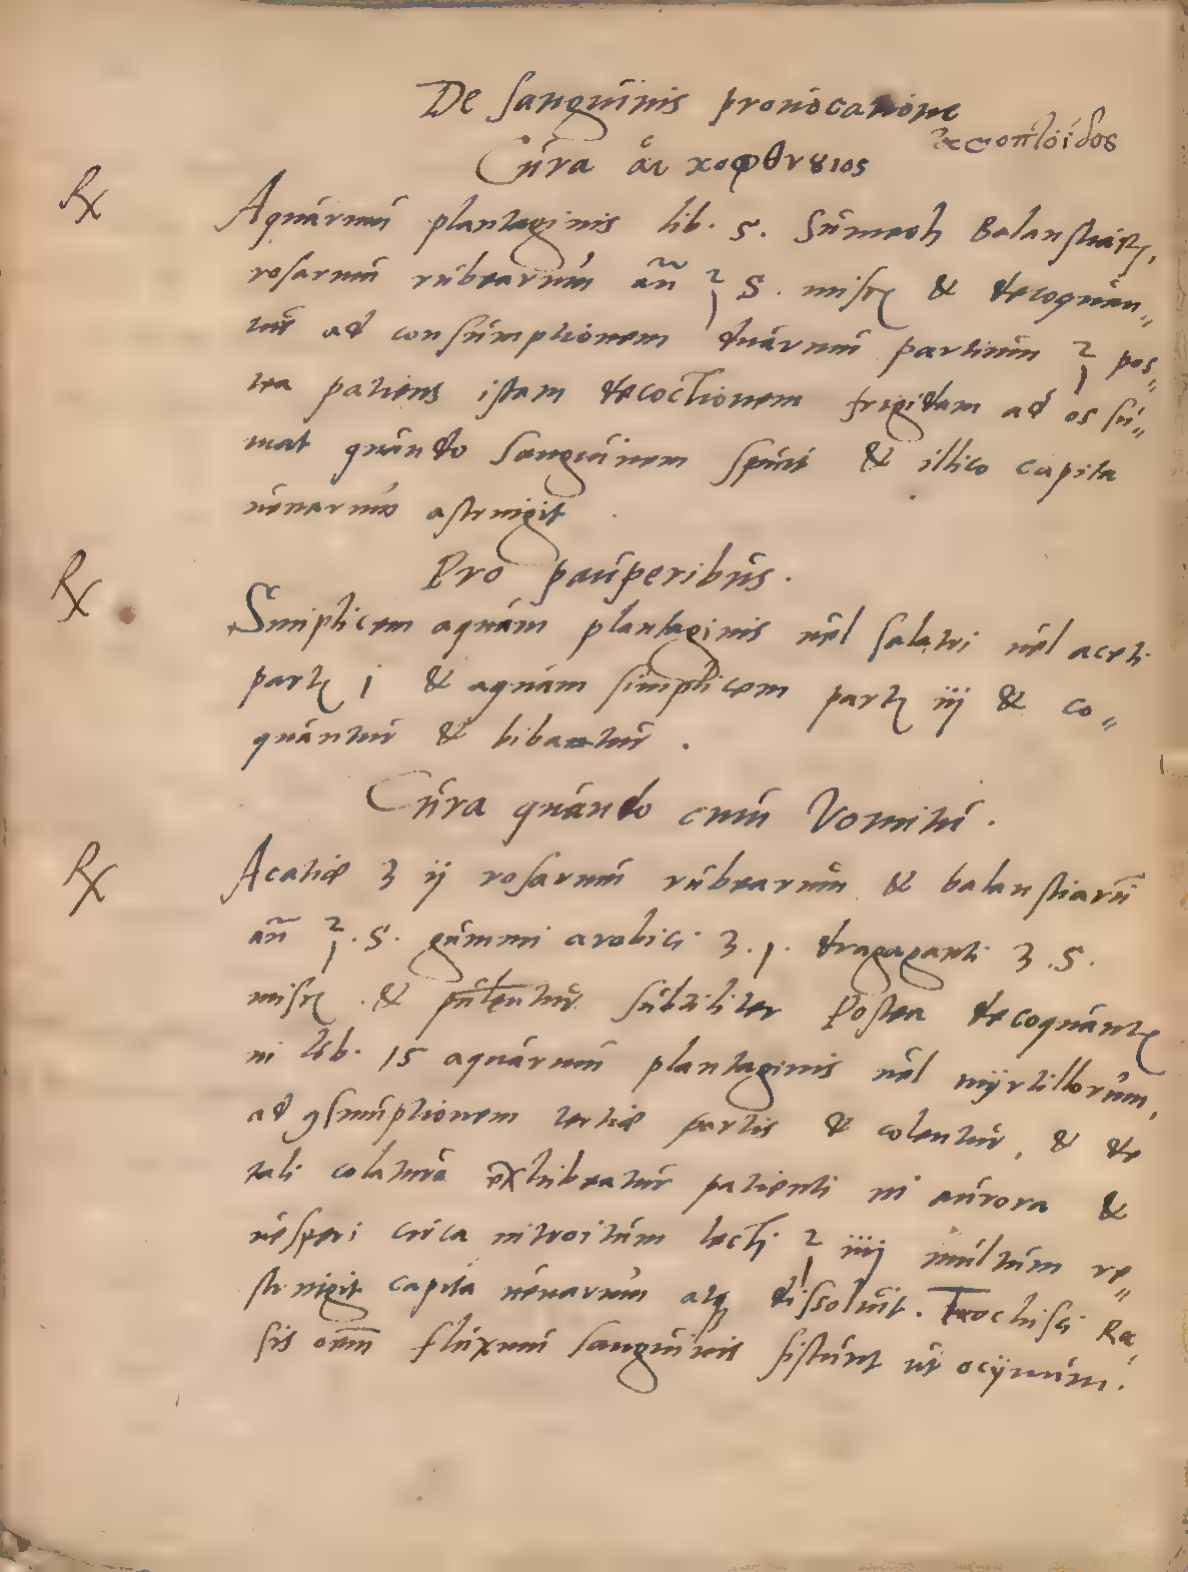 De sanguinis provocatione
Cura
℞ Aquarum plantaginis lib. s. Sumach Balaustiar,
rosarum rubearum añ ℥ S. misc & decoquan=
tur ad consumptionem duarum partium ℥ pos=
tea patiens istam decoctionem frigidam ad os su=
mat quando sanguinem spuit & illico capita
uenarum astringit.
℞ Pro pauperibus.
Simplicem aquam plantaginis uel salatri uel aceti
part j & aquam simplicem part iij & co=
quantur & bibantur.
Cura quando cum Vomitu.
℞ Acatiæ ʒ ij rosarum rubearum & balaustiarū
añ ℥. S. gummi arabici ʒ. j. dragaganti ʒ. S.
misc. & subtiliter Postea decoquant
in lib. 15 aquarum plantaginis uel myrtillorum,
ad ꝯsumptionem tertiæ partis & colentur, & de
tali colatura exhibeatur patienti in aurora &
uesperi circa introitum lecti ℥ iiij multum re=
stringit capita uenarum atq dissoluit. Trochisci Ra
sis omn̄ fluxum sanguinis sistunt ut ocymum.